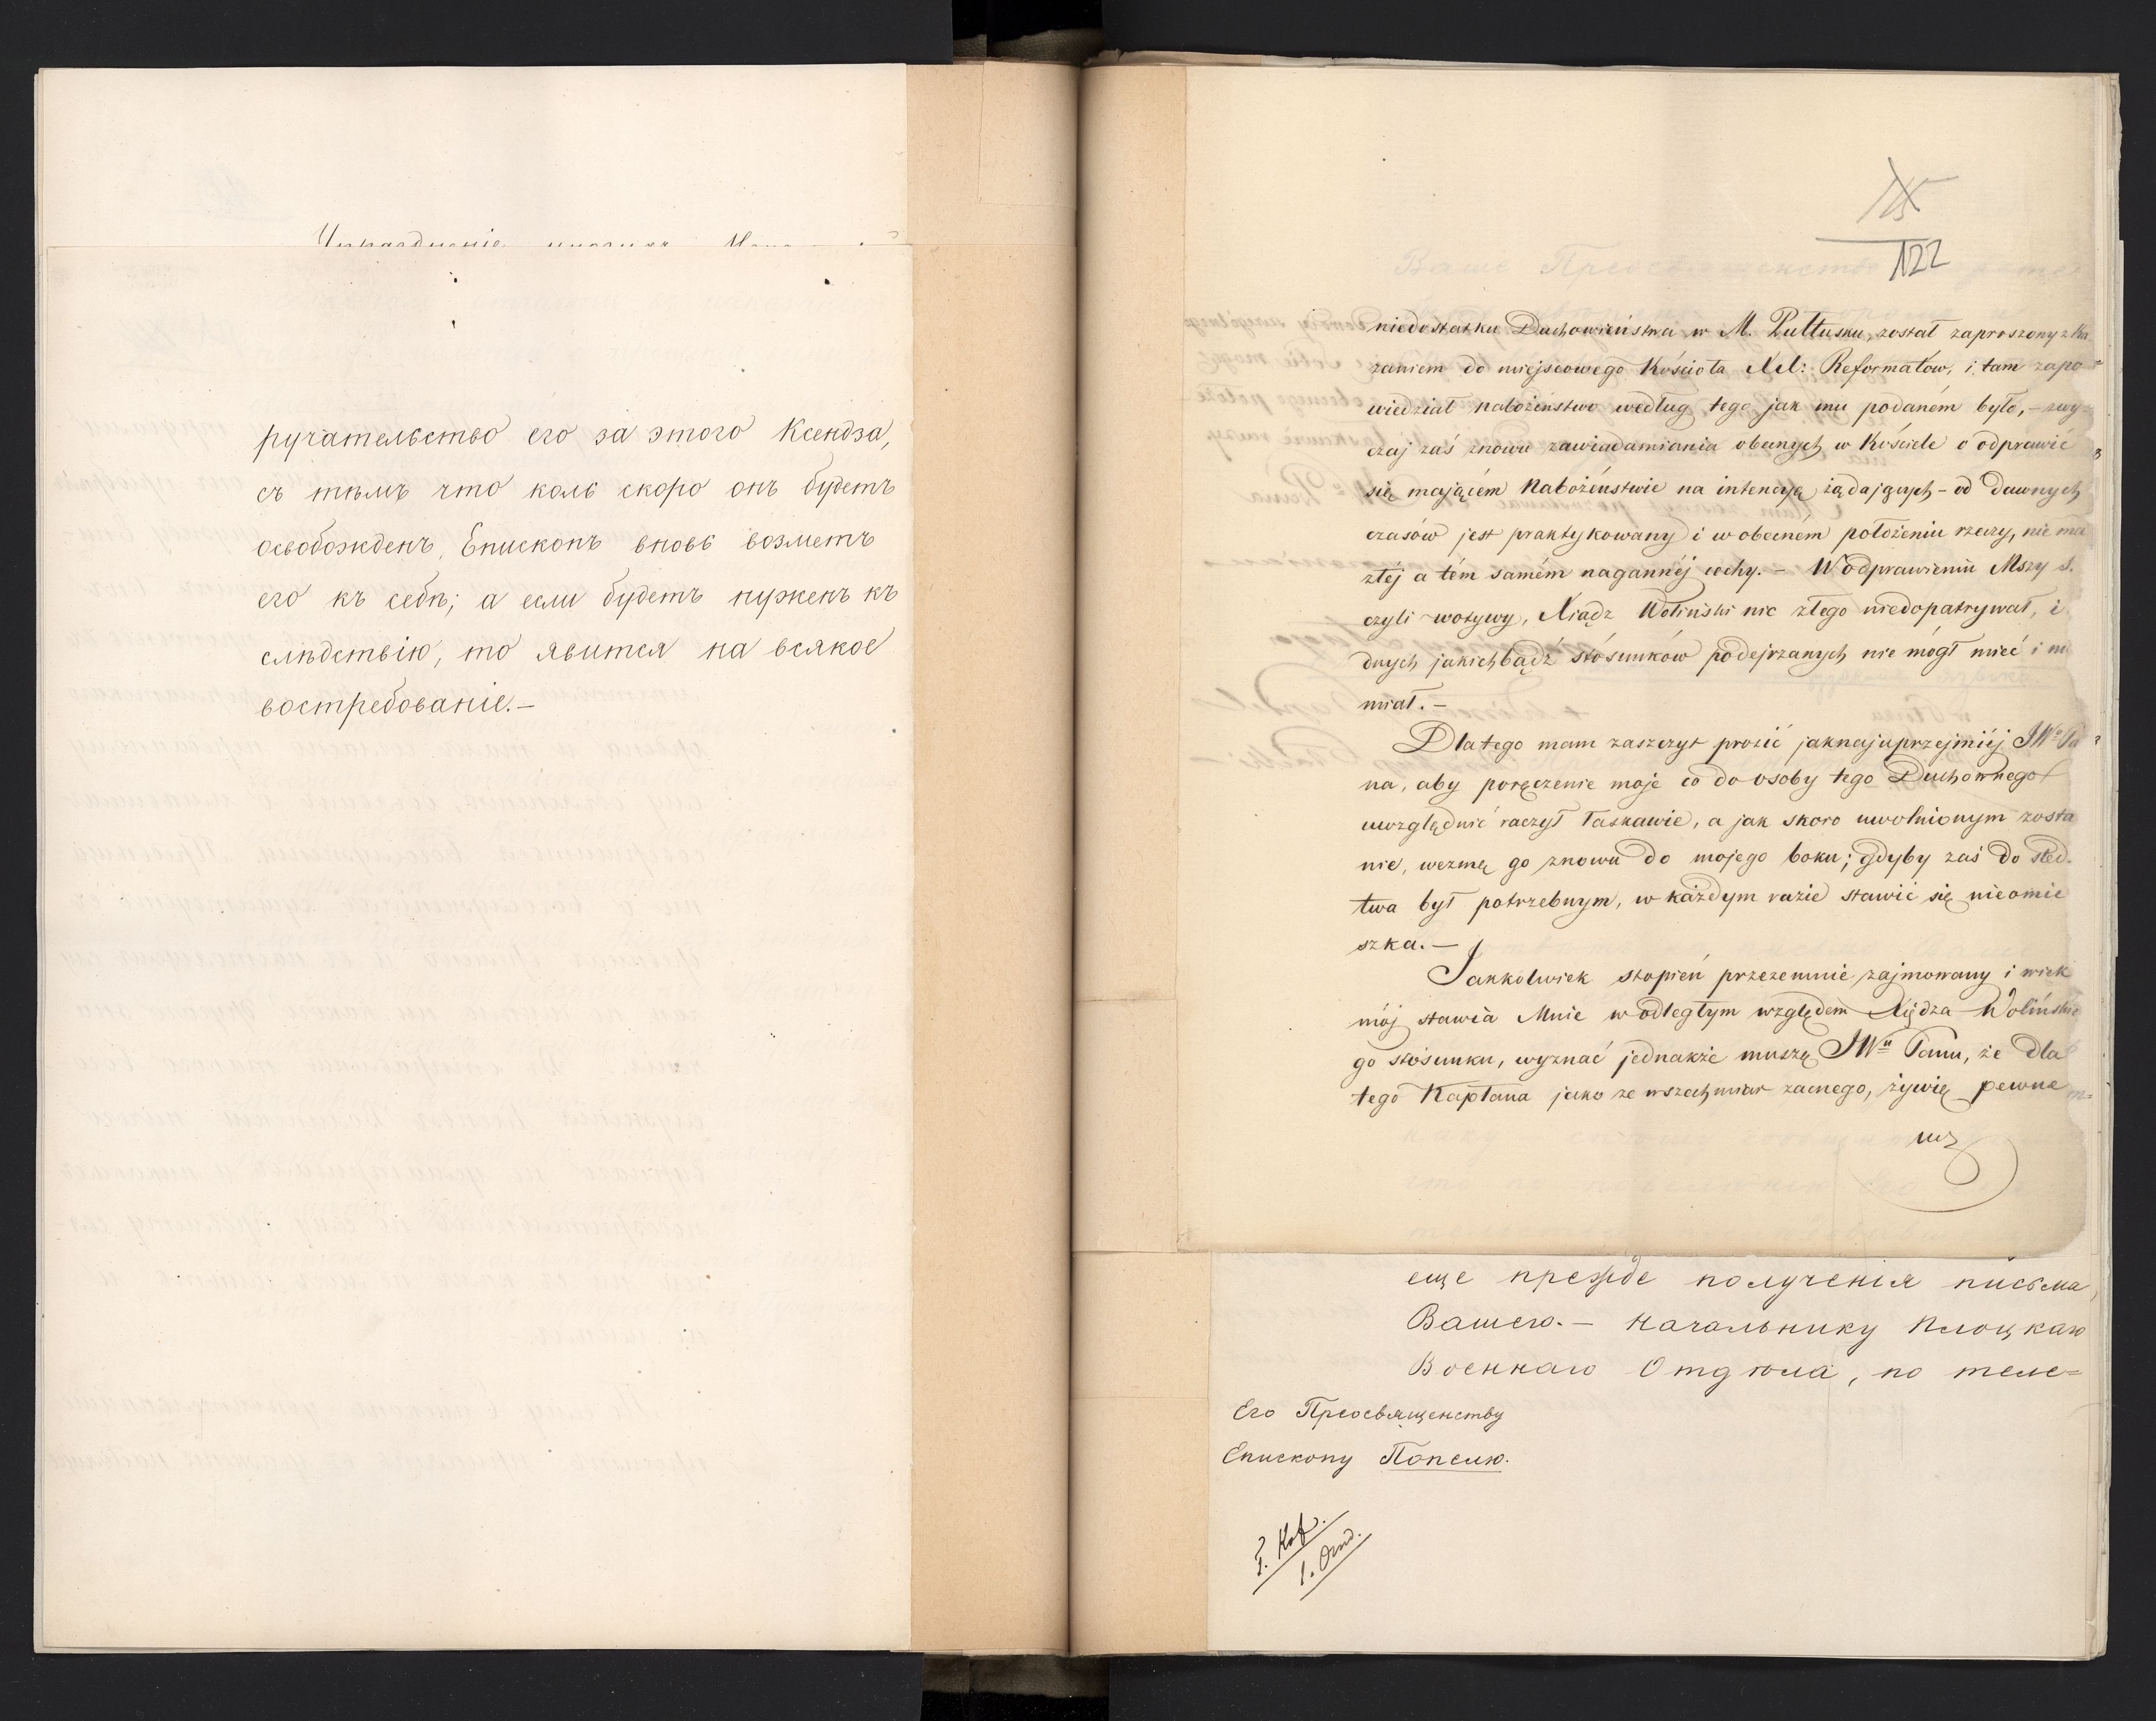 ручательство его за этого Ксендза,
съ тѣмъ что коль скоро онъ будетъ
освобожденъ, Епископъ вновь возметъ
его къ себѣ; а если будетъ нуженъ къ
слѣдствію, то явится на всякое
востребованіе.—
122
niedostatku Duchowieństwa w M. Pułtusku, został zaproszony z ka
zaniem do miejscowego Kościoła XX: Reformatów, i tam zapo=
wiedział nabożeństwo według tego jak mu podaném było, – zwy=
czaj zaś znowu zawiadamiania obecnych w Kościele o odprawić
się mającém Nabożeństwie na intencyą żądających – od dawnych
czasów jest praktykowany i w obecném położeniu rzeczy, nie ma
złéj a tém samém nagannéj cechy. – W odprawieniu Mszy s.
czyli wotywy, Xiądz Woliński nic złego niedopatrywał, i
dnych jakichbądź stósunków podejrzanych nie mógł mieć i ni
miał. –
Dla tego mam zaszczyt prosić jaknajuprzejmiéj JWo Pa
na, aby poręczenie moje co do osoby tego Duchownego
uwzględnić raczył łaskawie, a jak skoro uwolnionym zosta
nie, wezmę go znowu do mojego boku; gdyby zaś do śled.
twa był potrzebnym, w każdym razie stawić się nieomie
szka. —
Jakkolwiek stopień przezemnie zajmowany i wiek
mój stawia Mnie w odległym względem Xiędza Wolińskie
go stósunku, wyznać jednakże muszę JWu Panu, że dla
tego Kapłana jako ze wszechmiar zacnego, żywię pewne
usz
еще прежде полученія письма
Вашего. — Начальнику Плоцкаго
Военнаго Отдѣла, по теле=
Его Преосвященству
Епископу Попелю.